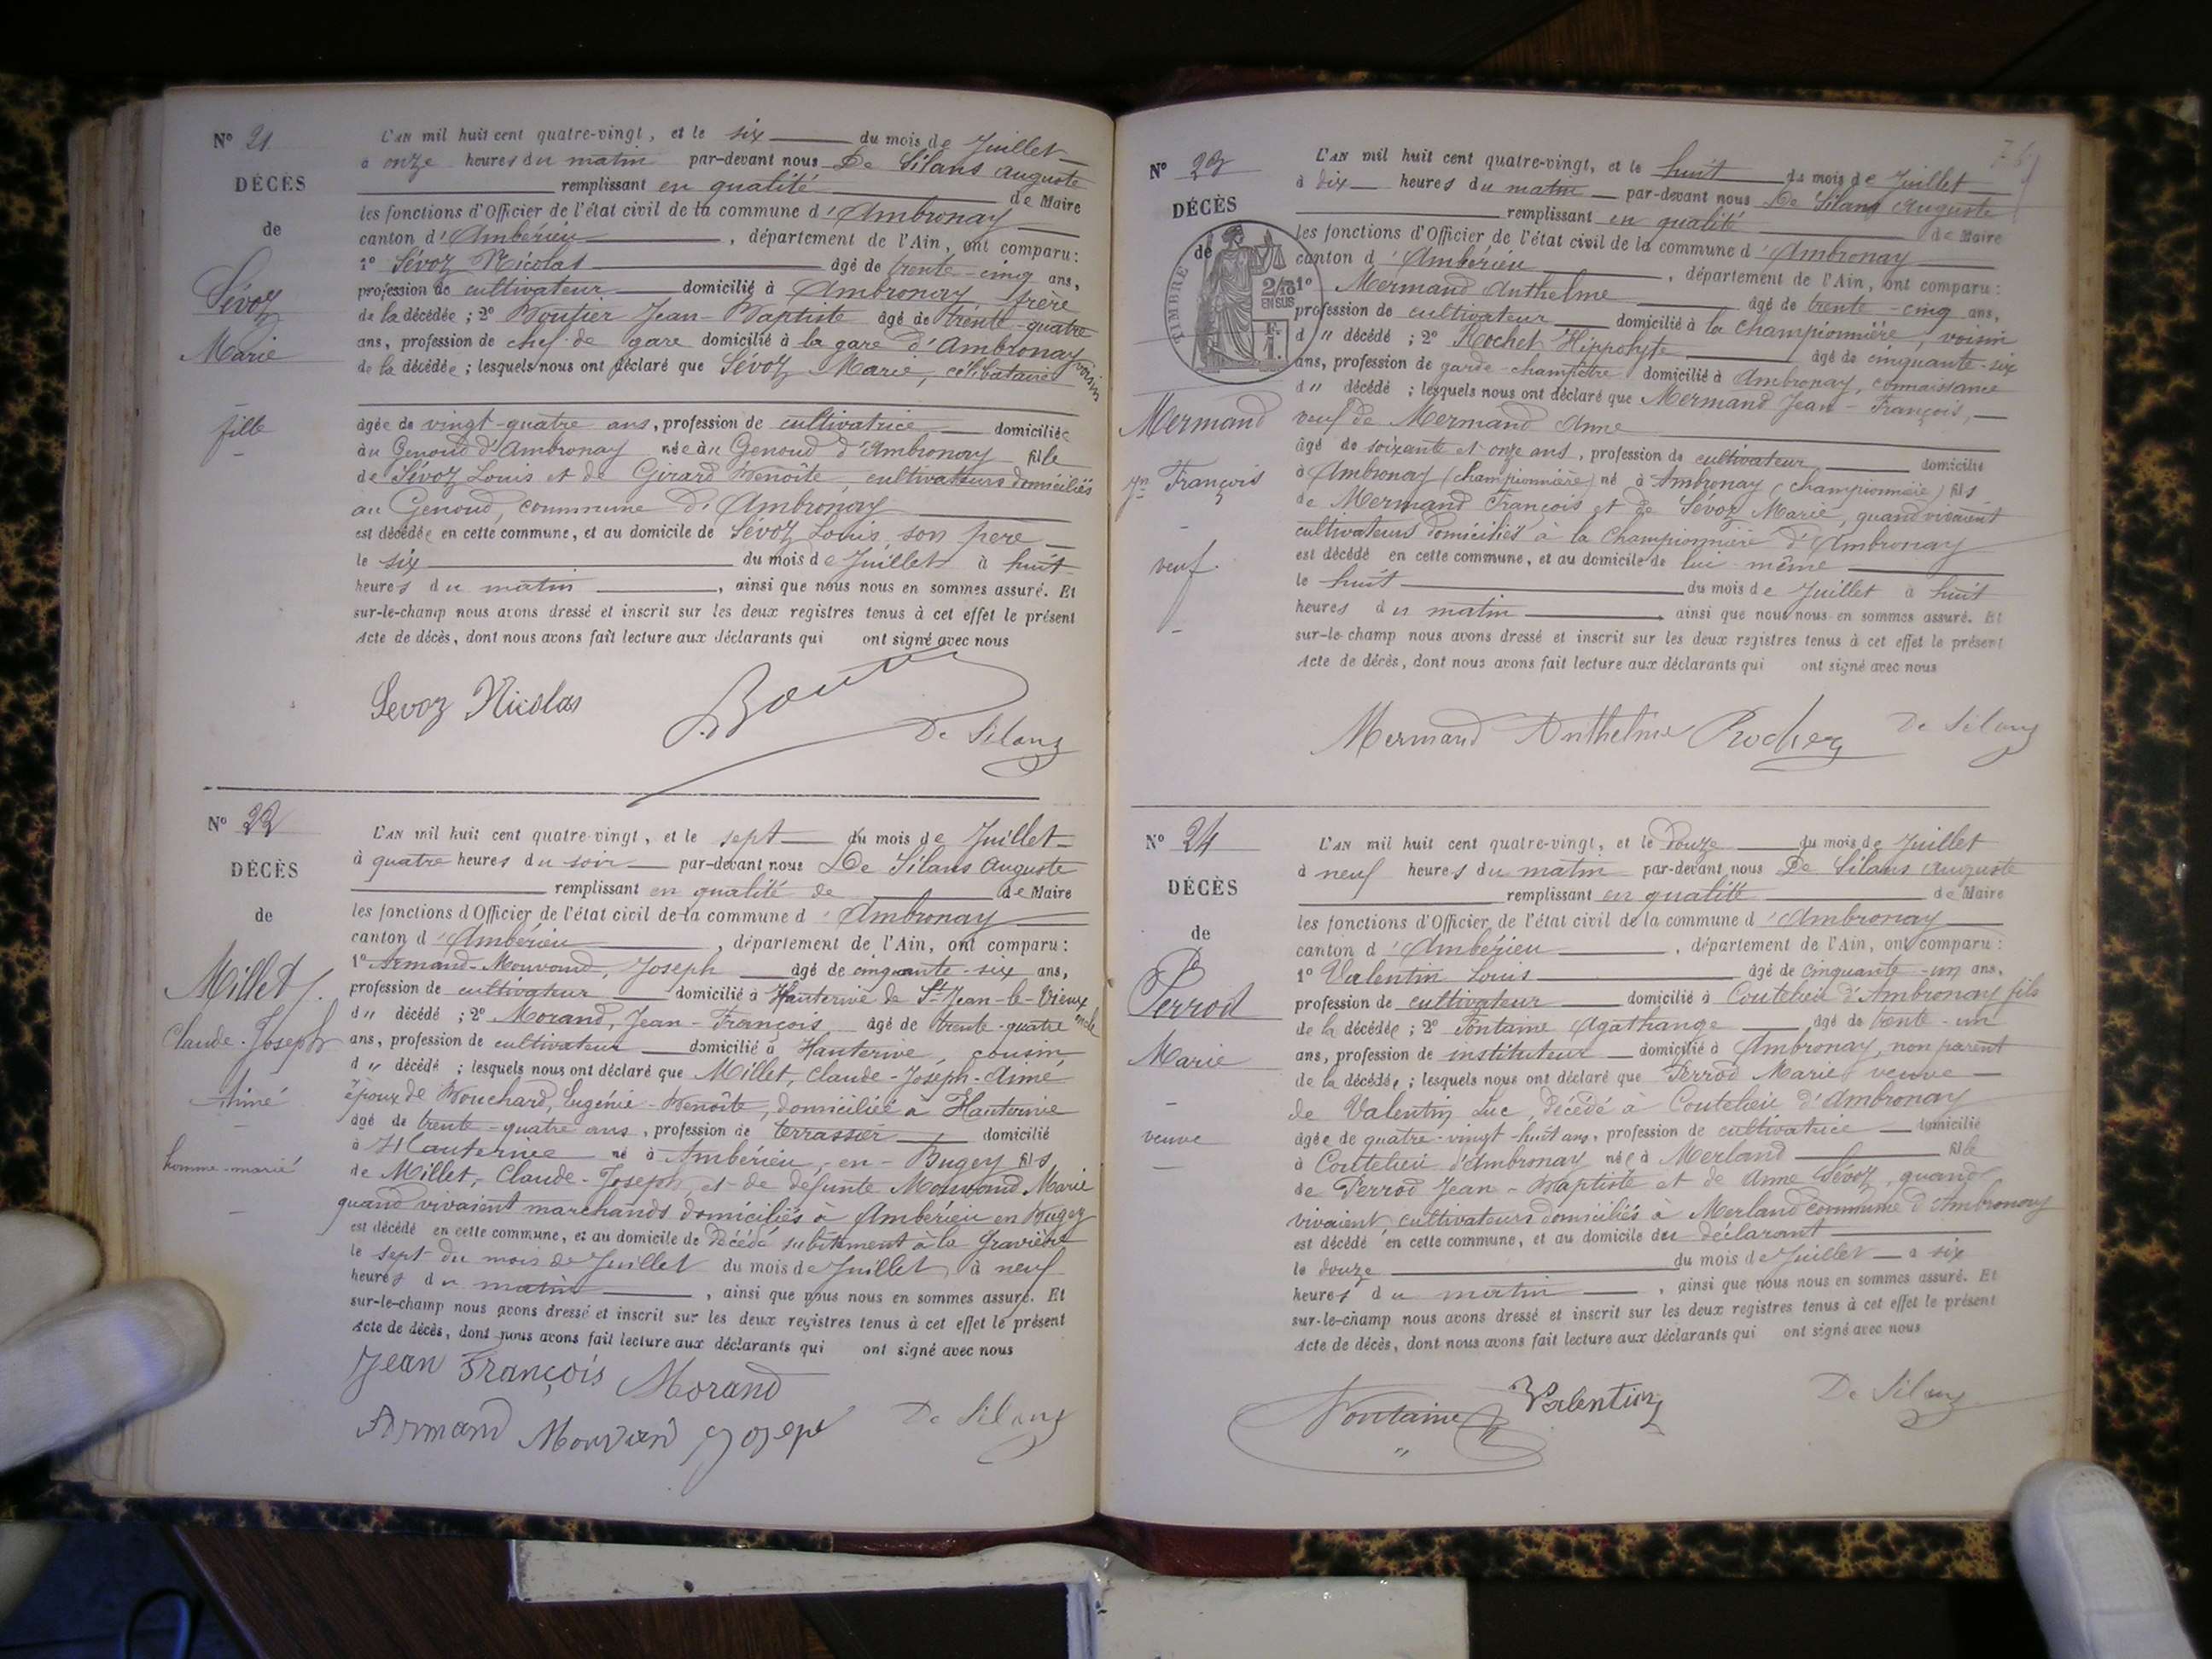 N° 21
DÉCÈS
de
Sévoz
Marie
fille
L'AN mil huit cent quatre-vingt, et le six du mois de Juillet
à onze heures du matin par-devant nous De Silans Auguste
remplissant en qualité de Maire
les fonctions d'Officier de l'état civil de la commune d'Ambronay
canton d'Ambérieu, département de l'Ain, ont comparu:
1° Sévoz Nicolas âgé de trente-cinq ans,
profession de cultivateur domicilié à Ambronay, frère
de la décédée; 2° Boutier Jean-Baptiste âgé de trente-quatre
ans, profession de chef de gare domicilié à la gare d'Ambronay voisin
de la décédée; lesquels nous ont déclaré que Sévoz Marie, célibataire
âgée de vingt-quatre ans, profession de cultivatrice domiciliée
au Genoud d'Ambronay née au Genoud d'Ambronay fille
de Sévoz Louis et de Girard Benoîte, cultivateurs domiciliés
au Genoud, commune d'Ambronay
est décédée en cette commune, et au domicile de Sévoz Louis, son père
le six du mois de Juillet à huit
heures du matin, ainsi que nous nous en sommes assuré. Et
sur-le-champ nous avons dressé et inscrit sur les deux registres tenus à cet effet le présent
Acte de décès, dont nous avons fait lecture aux déclarants qui ont signé avec nous
Sevoz Nicolas
De Silans
N° 22
DÉCÈS
de
Millet
Claude-Joseph
Aimé
homme-marié
L'AN mil huit cent quatre-vingt, et le sept du mois de Juillet
à quatre heures du soir par-devant nous De Silans Auguste
remplissant en qualité de de Maire
les fonctions d'Officier de l'état civil de la commune d'Ambronay
canton d'Ambérieu, département de l'Ain, ont comparu:
1° Armand-Mouvand, Joseph âgé de cinquante-six ans,
profession de cultivateur domicilié à Hauterive de St-Jean-le-Vieux oncle
d" décédé; 2° Morand, Jean-François âgé de trente-quatre
ans, profession de cultivateur domicilié à Hauterive, cousin
d" décédé; lesquels nous ont déclaré que Millet, Claude-Joseph-Aimé
époux de Bouchard, Eugénie-Benoîte, domiciliée à Hauterive
âgé de trente-quatre ans, profession de terrassier domicilié
à Hauterive né à Ambérieu-en-Bugey fils
de Millet, Claude-Joseph et de défunte Mouvand Marie
quand vivaient marchands domiciliés à Ambérieu en Bugey
est décédé en cette commune, et au domicile de Décédé subitement à la Gravière
le sept du mois de Juillet du mois de Juillet à neuf
heures du matin, ainsi que nous nous en sommes assuré. Et
sur-le-champ nous avons dressé et inscrit sur les deux registres tenus à cet effet le présent
Acte de décès, dont nous avons fait lecture aux déclarants qui ont signé avec nous
Jean François Morand
Armand Mouvand Joseph
De Silans
N° 23
DÉCÈS
de
TIMBRE
2/10
EN SUS
Mermand
Jn François
veuf
L'AN mil huit cent quatre-vingt, et le huit du mois de Juillet
à dix heures du matin par-devant nous De Silans Auguste
remplissant en qualité de Maire
les fonctions d'Officier de l'état civil de la commune d'Ambronay
canton d'Ambérieu, département de l'Ain, ont comparu:
1° Mermand Anthelme âgé de trente-cinq ans,
profession de cultivateur domicilié à la Championnière, voisin
d" décédé; 2° Rochet Hippolyte âgé de cinquante-six
ans, profession de garde-champêtre domicilié à Ambronay, connaissance
d" décédé; lesquels nous ont déclaré que Mermand Jean-François,
veuf de Mermand Anne
âgé de soixante et onze ans, profession de cultivateur domicilié
à Ambronay (Championnière) né à Ambronay (Championnière) fils
de Mermand François et de Sévoz Marie, quand vivaient
cultivateurs domiciliés à la Championnière d'Ambronay
est décédé en cette commune, et au domicile de lui-même
le huit du mois de Juillet à huit
heures du matin ainsi que nous nous en sommes assuré. Et
sur-le-champ nous avons dressé et inscrit sur les deux registres tenus à cet effet le présent
Acte de décès, dont nous avons fait lecture aux déclarants qui ont signé avec nous
Mermand Anthelme
De Silans
N° 24
DÉCÈS
de
Perrod
Marie
veuve
L'AN mil huit cent quatre-vingt, et le Douze du mois de Juillet
à neuf heures du matin par-devant nous De Silans Auguste
remplissant en qualité de Maire
les fonctions d'Officier de l'état civil de la commune d'Ambronay
canton d'Ambérieu, département de l'Ain, ont comparu:
1° Valentin Louis âgé de cinquante-un ans,
profession de cultivateur domicilié à Coutelieu d'Ambronay fils
de la décédée; 2° Fontaine Agathange âgé de trente-un
ans, profession de instituteur domicilié à Ambronay, non parent
de la décédée; lesquels nous ont déclaré que Perrod Marie, veuve
de Valentin Luc, décédé à Coutelieu d'Ambronay
âgée de quatre-vingt-huit ans, profession de cultivatrice domicilié
à Coutelieu d'Ambronay née à Merland fille
de Perrod Jean-Baptiste et de Anne Sévoz, quand
vivaient cultivateurs domiciliés à Merland commune d'Ambronay
est décédé en cette commune, et au domicile du déclarant
le douze du mois de Juillet à six
heures du matin, ainsi que nous nous en sommes assuré. Et
sur-le-champ nous avons dressé et inscrit sur les deux registres tenus à cet effet le présent
Acte de décès, dont nous avons fait lecture aux déclarants qui ont signé avec nous
Fontaine
Valentin
De Silans